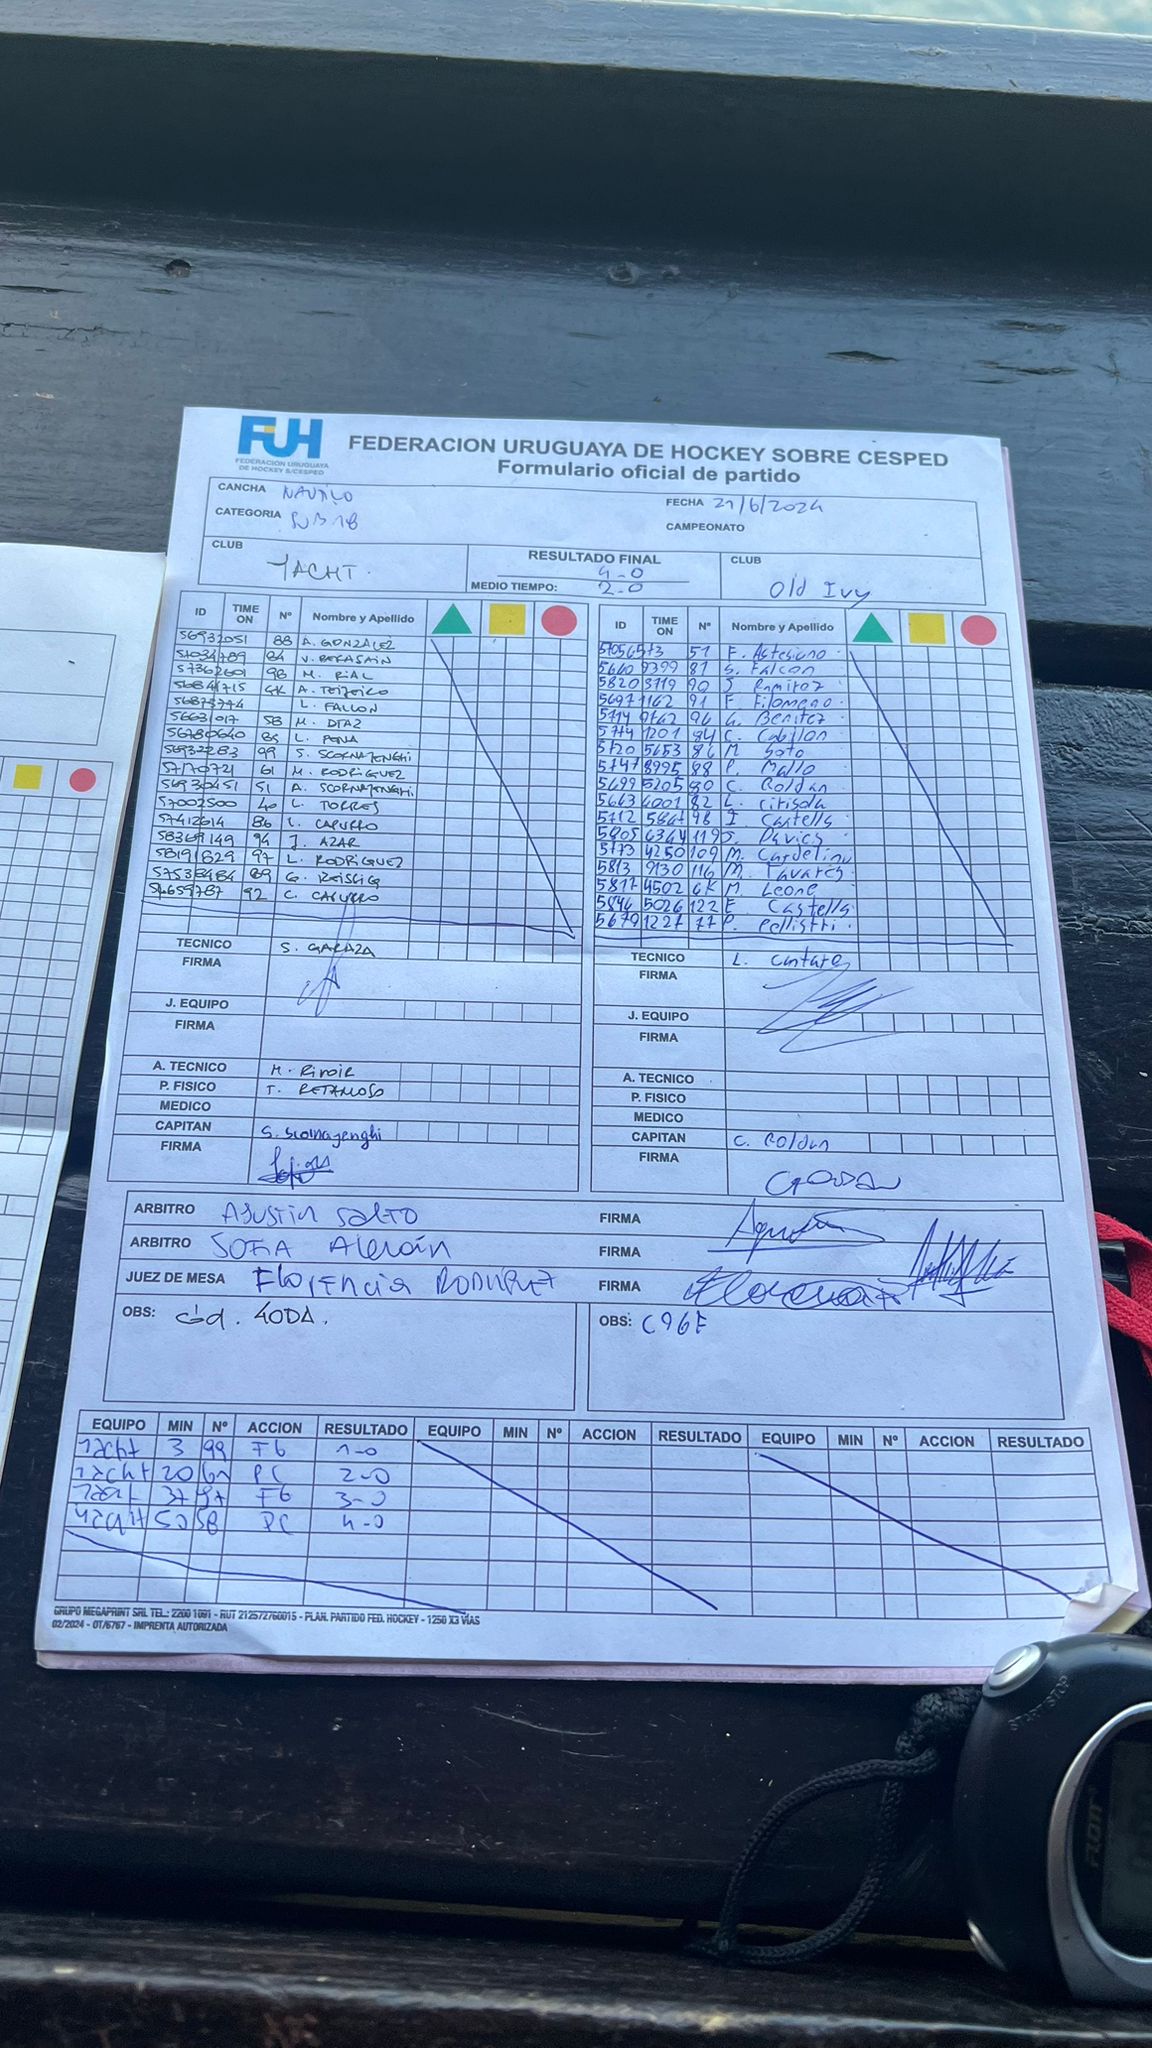 FUH
FEDERACION URUGUAYA
DE HOCKEY S/CESPED
FEDERACION URUGUAYA DE HOCKEY SOBRE CESPED
Formulario oficial de partido
CANCHA NAUTICO FECHA 21/6/2024
CATEGORIA SUB18 CAMPEONATO
CLUB YACHT. RESULTADO FINAL 4-0 CLUB Old Ivy
MEDIO TIEMPO: 2-0
ID TIME ON Nº Nombre y Apellido
56932051 88 A. GONZALEZ
84 V. BERASAIN
57362601 98 M. RIAL
GK A. TEIXEIRO
L. FALLON
58 M. DIAZ
56780640 85 L. PENA
56932283 99 S. SCORNAJENGHI
57170721 61 M. RODRIGUEZ
56930451 51 A. SCORNAJENGHI
57002500 40 L. TORRES
57412614 86 L. CAPURRO
58369149 94 J. AZAR
58191829 97 L. RODRIGUEZ
89 G.
92 C. CAPURRO
TECNICO S. GARAZA
FIRMA
J. EQUIPO
FIRMA
A. TECNICO M. Rivoir
P. FISICO T. RETAMOSO
MEDICO
CAPITAN S. Scornajenghi
FIRMA
ID TIME ON Nº Nombre y Apellido
51 F. Artesiano
5660 9399 81 S. Falcon
5820 3719 90 S. Ramirez
5697 1162 91 F. Filomeno
96 G. Benitez
5774 1201 84 C. Cabillon
5720 5653 86 M. Soto
5747 8995 88 P. Mallo
5699 5205 80 C. Roldan
5663 4001 82 L. Citisola
5712 5867 98 I. Castells
5805 6344 119 S. Davies
5773 4250 109 M. Cardelino
5813 9130 116 M. Tavares
5817 4502 GK M. Leone
5846 5026 122 E. Castells
5679 1227 77 P. Pellistri
TECNICO L. Cantare
FIRMA
J. EQUIPO
FIRMA
A. TECNICO
P. FISICO
MEDICO
CAPITAN C. Roldan
FIRMA
ARBITRO AGUSTIN SALTO FIRMA
ARBITRO SOFIA Alemán FIRMA
JUEZ DE MESA Florencia RODRIGUEZ FIRMA
OBS: cód. 40DA. OBS: C96E
EQUIPO MIN Nº ACCION RESULTADO EQUIPO MIN Nº ACCION RESULTADO EQUIPO MIN Nº ACCION RESULTADO
Yacht 3 99 FG 1-0
Yacht 20 61 PC 2-0
Yacht 37 97 FG 3-0
Yacht 50 58 PC 4-0
GRUPO MEGAPRINT SRL TEL.: 2200 1091 - RUT 212572760015 - PLAN. PARTIDO FED. HOCKEY - 1250 X3 VIAS
02/2024 - OT/6767 - IMPRENTA AUTORIZADA
START/STOP